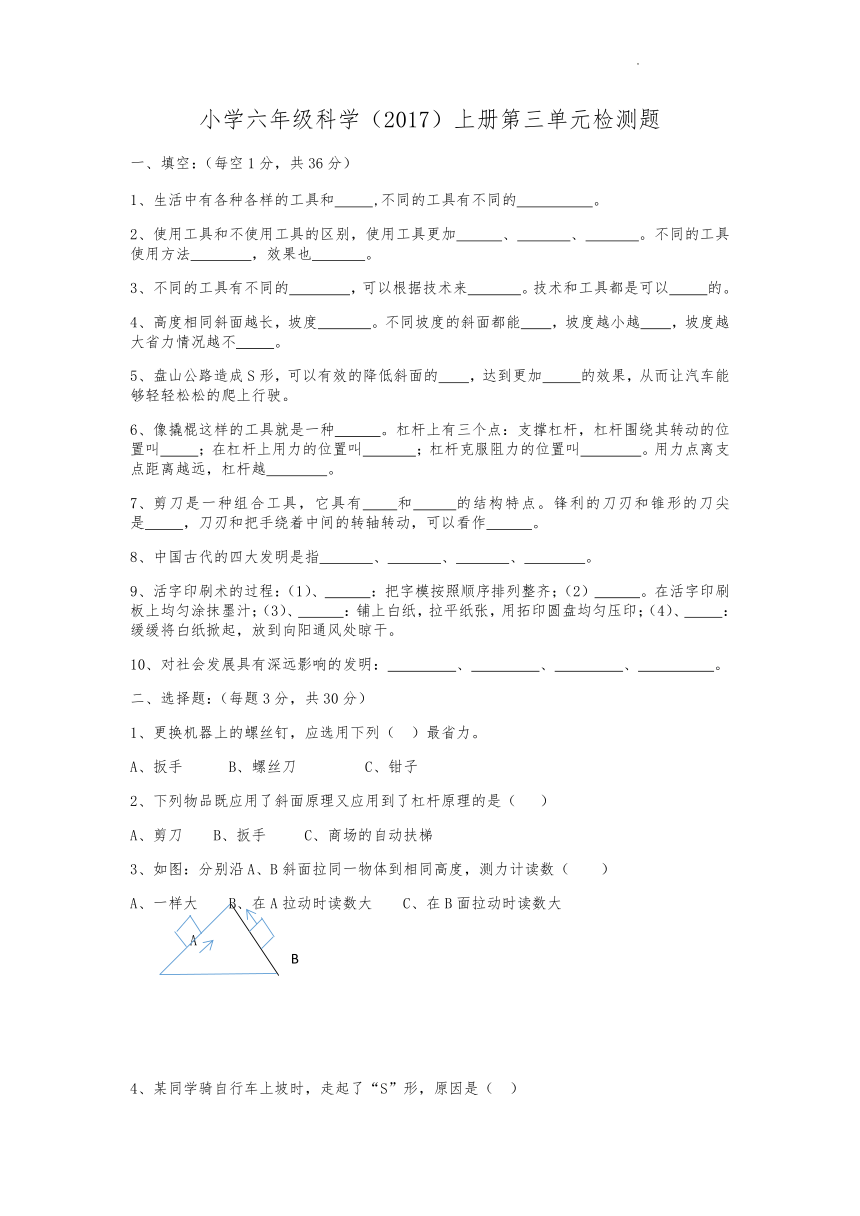 小学六年级科学（2017）上册第三单元检测题
一、填空:（每空1分，共36分）
1、生活中有各种各样的工具和_____,不同的工具有不同的__________。
2、使用工具和不使用工具的区别，使用工具更加______、_______、_______。不同的工具
使用方法________，效果也_______。
3、不同的工具有不同的________，可以根据技术来_______。技术和工具都是可以_____的。
4、高度相同斜面越长，坡度_______。不同坡度的斜面都能____，坡度越小越____，坡度越
大省力情况越不_____。
5、盘山公路造成S形，可以有效的降低斜面的____，达到更加_____的效果，从而让汽车能
够轻轻松松的爬上行驶。
6、像撬棍这样的工具就是一种______。杠杆上有三个点：支撑杠杆，杠杆围绕其转动的位
置叫_____；在杠杆上用力的位置叫_______；杠杆克服阻力的位置叫________。用力点离支
点距离越远，杠杆越________。
7、剪刀是一种组合工具，它具有_____和_____的结构特点。锋利的刀刃和锥形的刀尖
是_____，刀刃和把手绕着中间的转轴转动，可以看作______。
8、中国古代的四大发明是指_______、_______、_______、________。
9、活字印刷术的过程：(1)、______：把字模按照顺序排列整齐；(2)______。在活字印刷
板上均匀涂抹墨汁；(3)、______：铺上白纸，拉平纸张，用拓印圆盘均匀压印；(4)、_____：
缓缓将白纸掀起，放到向阳通风处晾干。
10、对社会发展具有深远影响的发明：_________、_________、_________、__________。
二、选择题:（每题3分，共30分）
1、更换机器上的螺丝钉，应选用下列（ ）最省力。
A、扳手 B、螺丝刀 C、钳子
2、下列物品既应用了斜面原理又应用到了杠杆原理的是（ ）
A、剪刀 B、扳手 C、商场的自动扶梯
3、如图：分别沿A、B斜面拉同一物体到相同高度，测力计读数（ ）
A、一样大 B、在A拉动时读数大 C、在B面拉动时读数大
A
B
4、某同学骑自行车上坡时，走起了“S”形，原因是（ ）